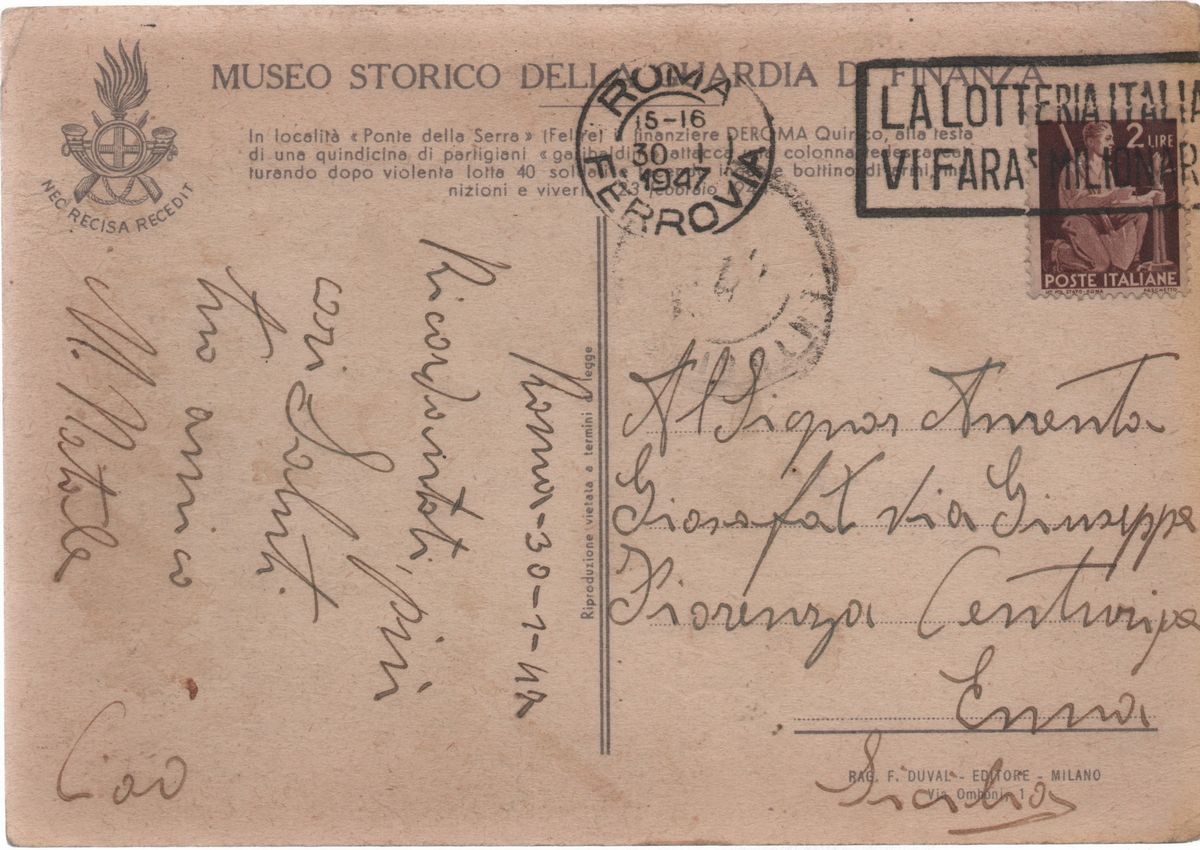 MUSEO STORICO DELLA GUARDIA DI FINANZA
NEC RECISA RECEDIT
In località « Ponte della Serra » (Feltre) il finanziere DEROMA Quirico, alla testa
di una quindicina di partigiani « garibaldi attacca una colonna tedesca
turando dopo violenta lotta 40 soldati bottino di armi, mu
nizioni e viveri 23 febbraio
ROMA
15-16
30 - 1
1947
FERROVIA
LA LOTTERIA ITALIA
VI FARA' MILIONAR
2 LIRE
POSTE ITALIANE
Roma - 30-1-47
Ricordandoti, pin
cari Saluti
tuo amico
M. Natale
Ciao
Riproduzione vietata a termini di legge
Al Signor Amenta
Giosafat Via Giuseppe
Piorenza Centuripe
Enna
Sicilia
RAG. F. DUVAL - EDITORE - MILANO
Via Omboni, 1